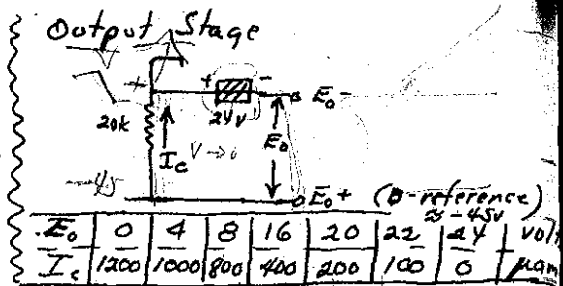 Output Stage
+ + - E₀-
20k 24V
I_c V → 0 E₀
-45
E₀+ (0-reference)
is -45V
E₀ 0 4 8 16 20 22 24 volt
I_c 1200 1000 800 400 200 100 0 µam